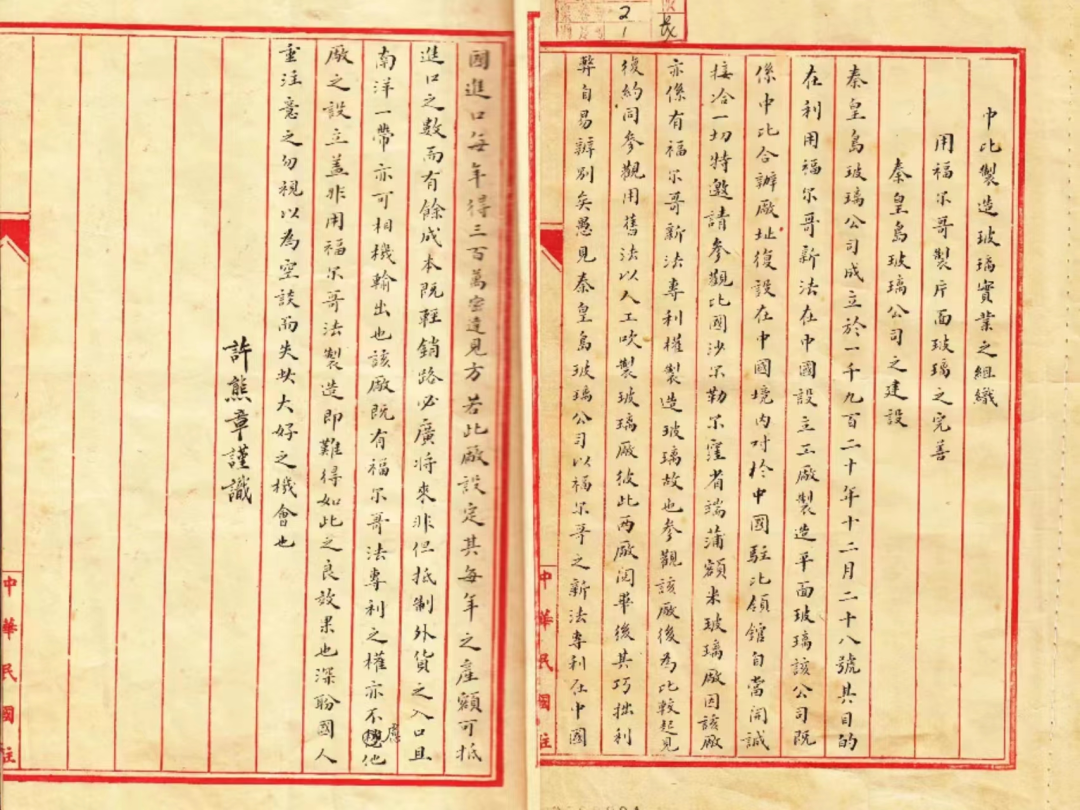 中比製造玻璃實業之組織
用福尔哥製片面玻璃之完善
秦皇島玻璃公司之建設
秦皇島玻璃公司成立於一千九百二十年十二月二十八號其目的
在利用福尔哥新法在中國設立工廠製造平面玻璃該公司既
係中比合辦廠址復設在中國境內对於中國駐比領館自當開誠
接洽一切特邀請參觀比國沙尔勒尔窪省端蒲額米玻璃廠因該廠
亦係有福尔哥新法專利權製造玻璃故也參觀該廠後為比較起見
後約同參觀用舊法以人工吹製玻璃廠彼此兩廠閱畢後其巧拙利
弊自易辨别矣愚見秦皇島玻璃公司以福尔哥之新法專利在中國
國進口每年得三百萬密達見方若此廠設定其每年之產額可抵
進口之數而有餘成本既輕銷路必廣将來非但抵制外貨之入口且
南洋一帶亦可相機輸出也該廠既有福尔哥法專利之權亦不應他
廠之設立蓋非用福尔哥法製造即難得如此之良效果也深盼國人
重注意之勿視以為空談而失此大好之機會也
許熊章謹識
中華民國駐
中華民國駐
2
1